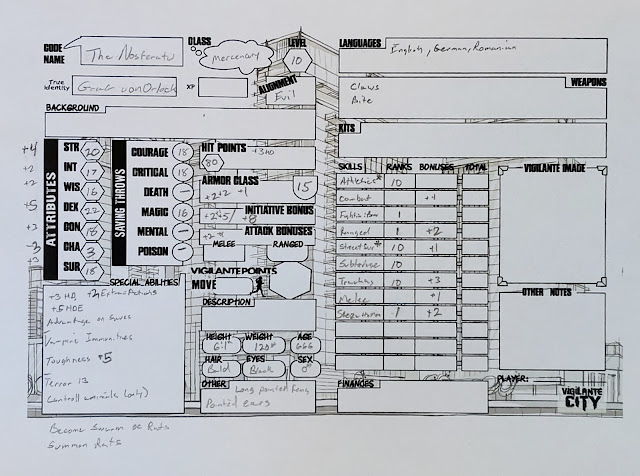 CODE NAME The Nosferatu
CLASS Mercenary
LEVEL 10
True Identity Graf von Orlock
XP
ALIGNMENT Evil
BACKGROUND
LANGUAGES English, German, Romanian
WEAPONS
Claws
Bite
KITS
ATTRIBUTES
+4 STR 20
+2 INT 17
+2 WIS 16
+5 DEX 22
+3 CON 18
-3 CHA 3
+3 SUR 18
SAVING THROWS
COURAGE 18
CRITICAL 18
DEATH —
MAGIC 16
MENTAL —
POISON —
HIT POINTS +3HD
80
ARMOR CLASS 15
+2 +2 +1
INITIATIVE BONUS
+2+5/ +8
ATTACK BONUSES
MELEE RANGED
VIGILANTE POINTS
MOVE
DESCRIPTION
HEIGHT WEIGHT AGE
6'5" 120# 666
HAIR EYES SEX
Bald Black ♂
OTHER Long pointed
Pointed ears
SPECIAL ABILITIES
+3 HD, +2
+5 HDE
Advantage on Saves
Vampire Immunities
Toughness +5
Terror 13
Controll animals (only)
Become Swarm of Rats
Summon Rats
SKILLS RANKS BONUSES TOTAL
Athletics* 10
Combat +4
1
Ranged 1 +2
Street Sur* 10 +1
Subterfuge 10
Tracking 10 +3
Melee +1
1 +2
VIGILANTE IMAGE
OTHER NOTES
FINANCES
PLAYER:
VIGILANTE CITY